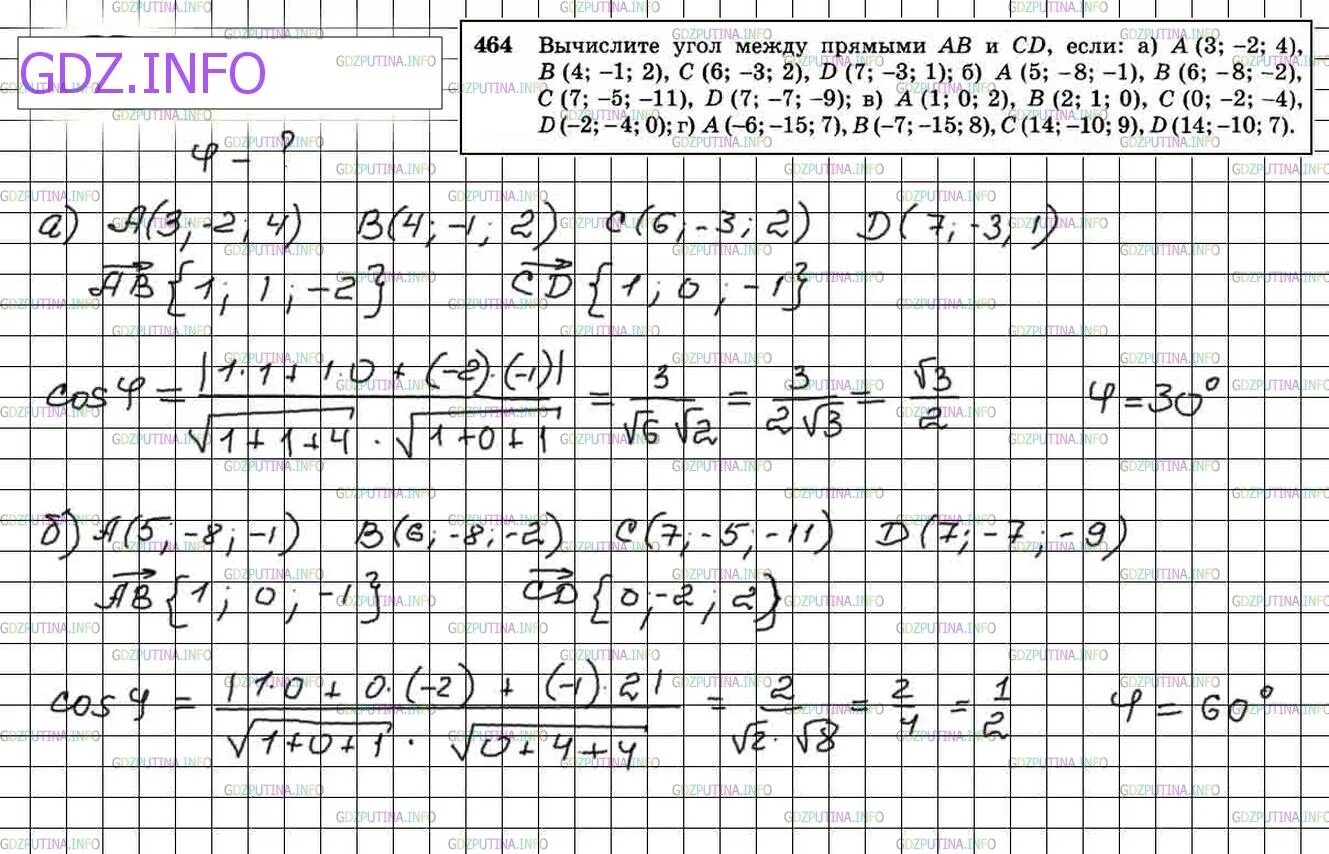 GDZ.INFO
464 Вычислите угол между прямыми AB и CD, если: а) A (3; –2; 4),
B (4; –1; 2), C (6; –3; 2), D (7; –3; 1); б) A (5; –8; –1), B (6; –8; –2),
C (7; –5; –11), D (7; –7; –9); в) A (1; 0; 2), B (2; 1; 0), C (0; –2; –4),
D (–2; –4; 0); г) A (–6; –15; 7), B (–7; –15; 8), C (14; –10; 9), D (14; –10; 7).
φ – ?
а) A(3; -2; 4) B(4; -1; 2) C(6; -3; 2) D(7; -3; 1)
AB{1; 1; -2} CD{1; 0; -1}
cos φ = |1·1 + 1·0 + (-2)·(-1)| / √1+1+4 · √1+0+1 = 3 / √6 √2 = 3 / 2√3 = √3 / 2 φ = 30°
б) A(5; -8; -1) B(6; -8; -2) C(7; -5; -11) D(7; -7; -9)
AB{1; 0; -1} CD{0; -2; 2}
cos φ = |1·0 + 0·(-2) + (-1)·2| / √1+0+1 · √0+4+4 = 2 / √2 · √8 = 2 / 4 = 1 / 2 φ = 60°
GDZPUTINA.INFO